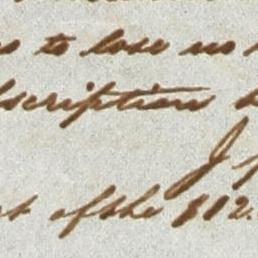 to lose no
scription
J
of the $12.